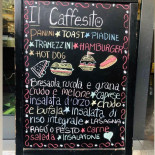 Il Caffesito
PANINI ★ TOAST ★ PIADINE
★ TRAMEZZINI ★ HAMBURGER
★ HOT DOG
Bresaola rucola e grana
crudo e melone ★ caprese
insalata d'orzo ★ crudo
e bufala ★ insalata di
riso integrale ★ LASAGNA
farro e pesto ★ carne
salada ★ INSALATONE